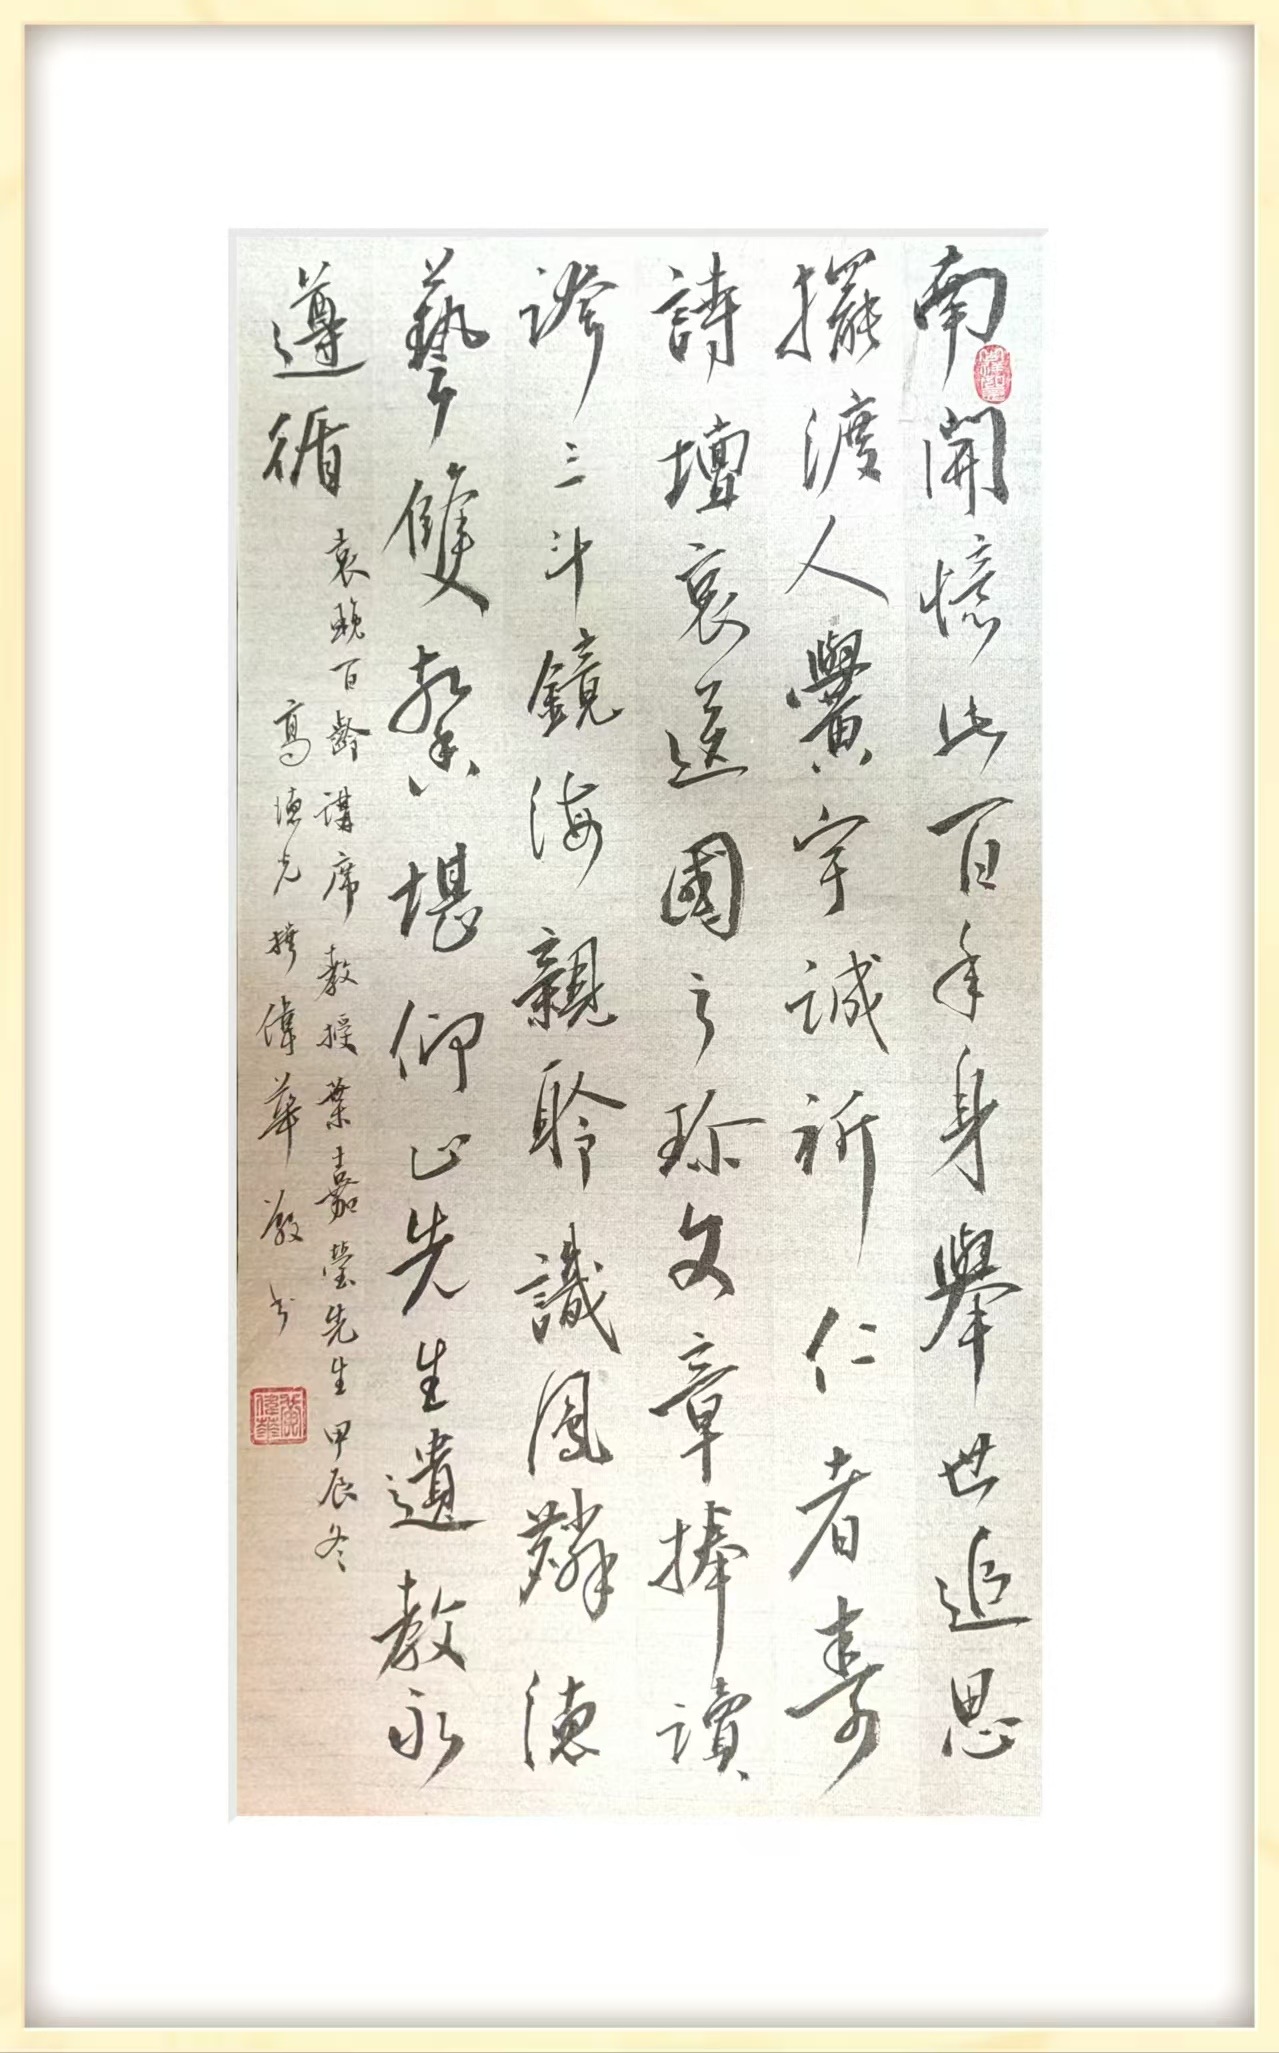 南開憶此百年身舉世追思
擺渡人黌宇誠祈仁者壽
詩壇哀送國之珍文章捧讀
誇三斗鏡海親聆識鳳麟德
藝雙馨堪仰止先生遺教永
遵循
哀輓百齡講席教授葉嘉瑩先生甲辰冬
高德光撰偉華敬书